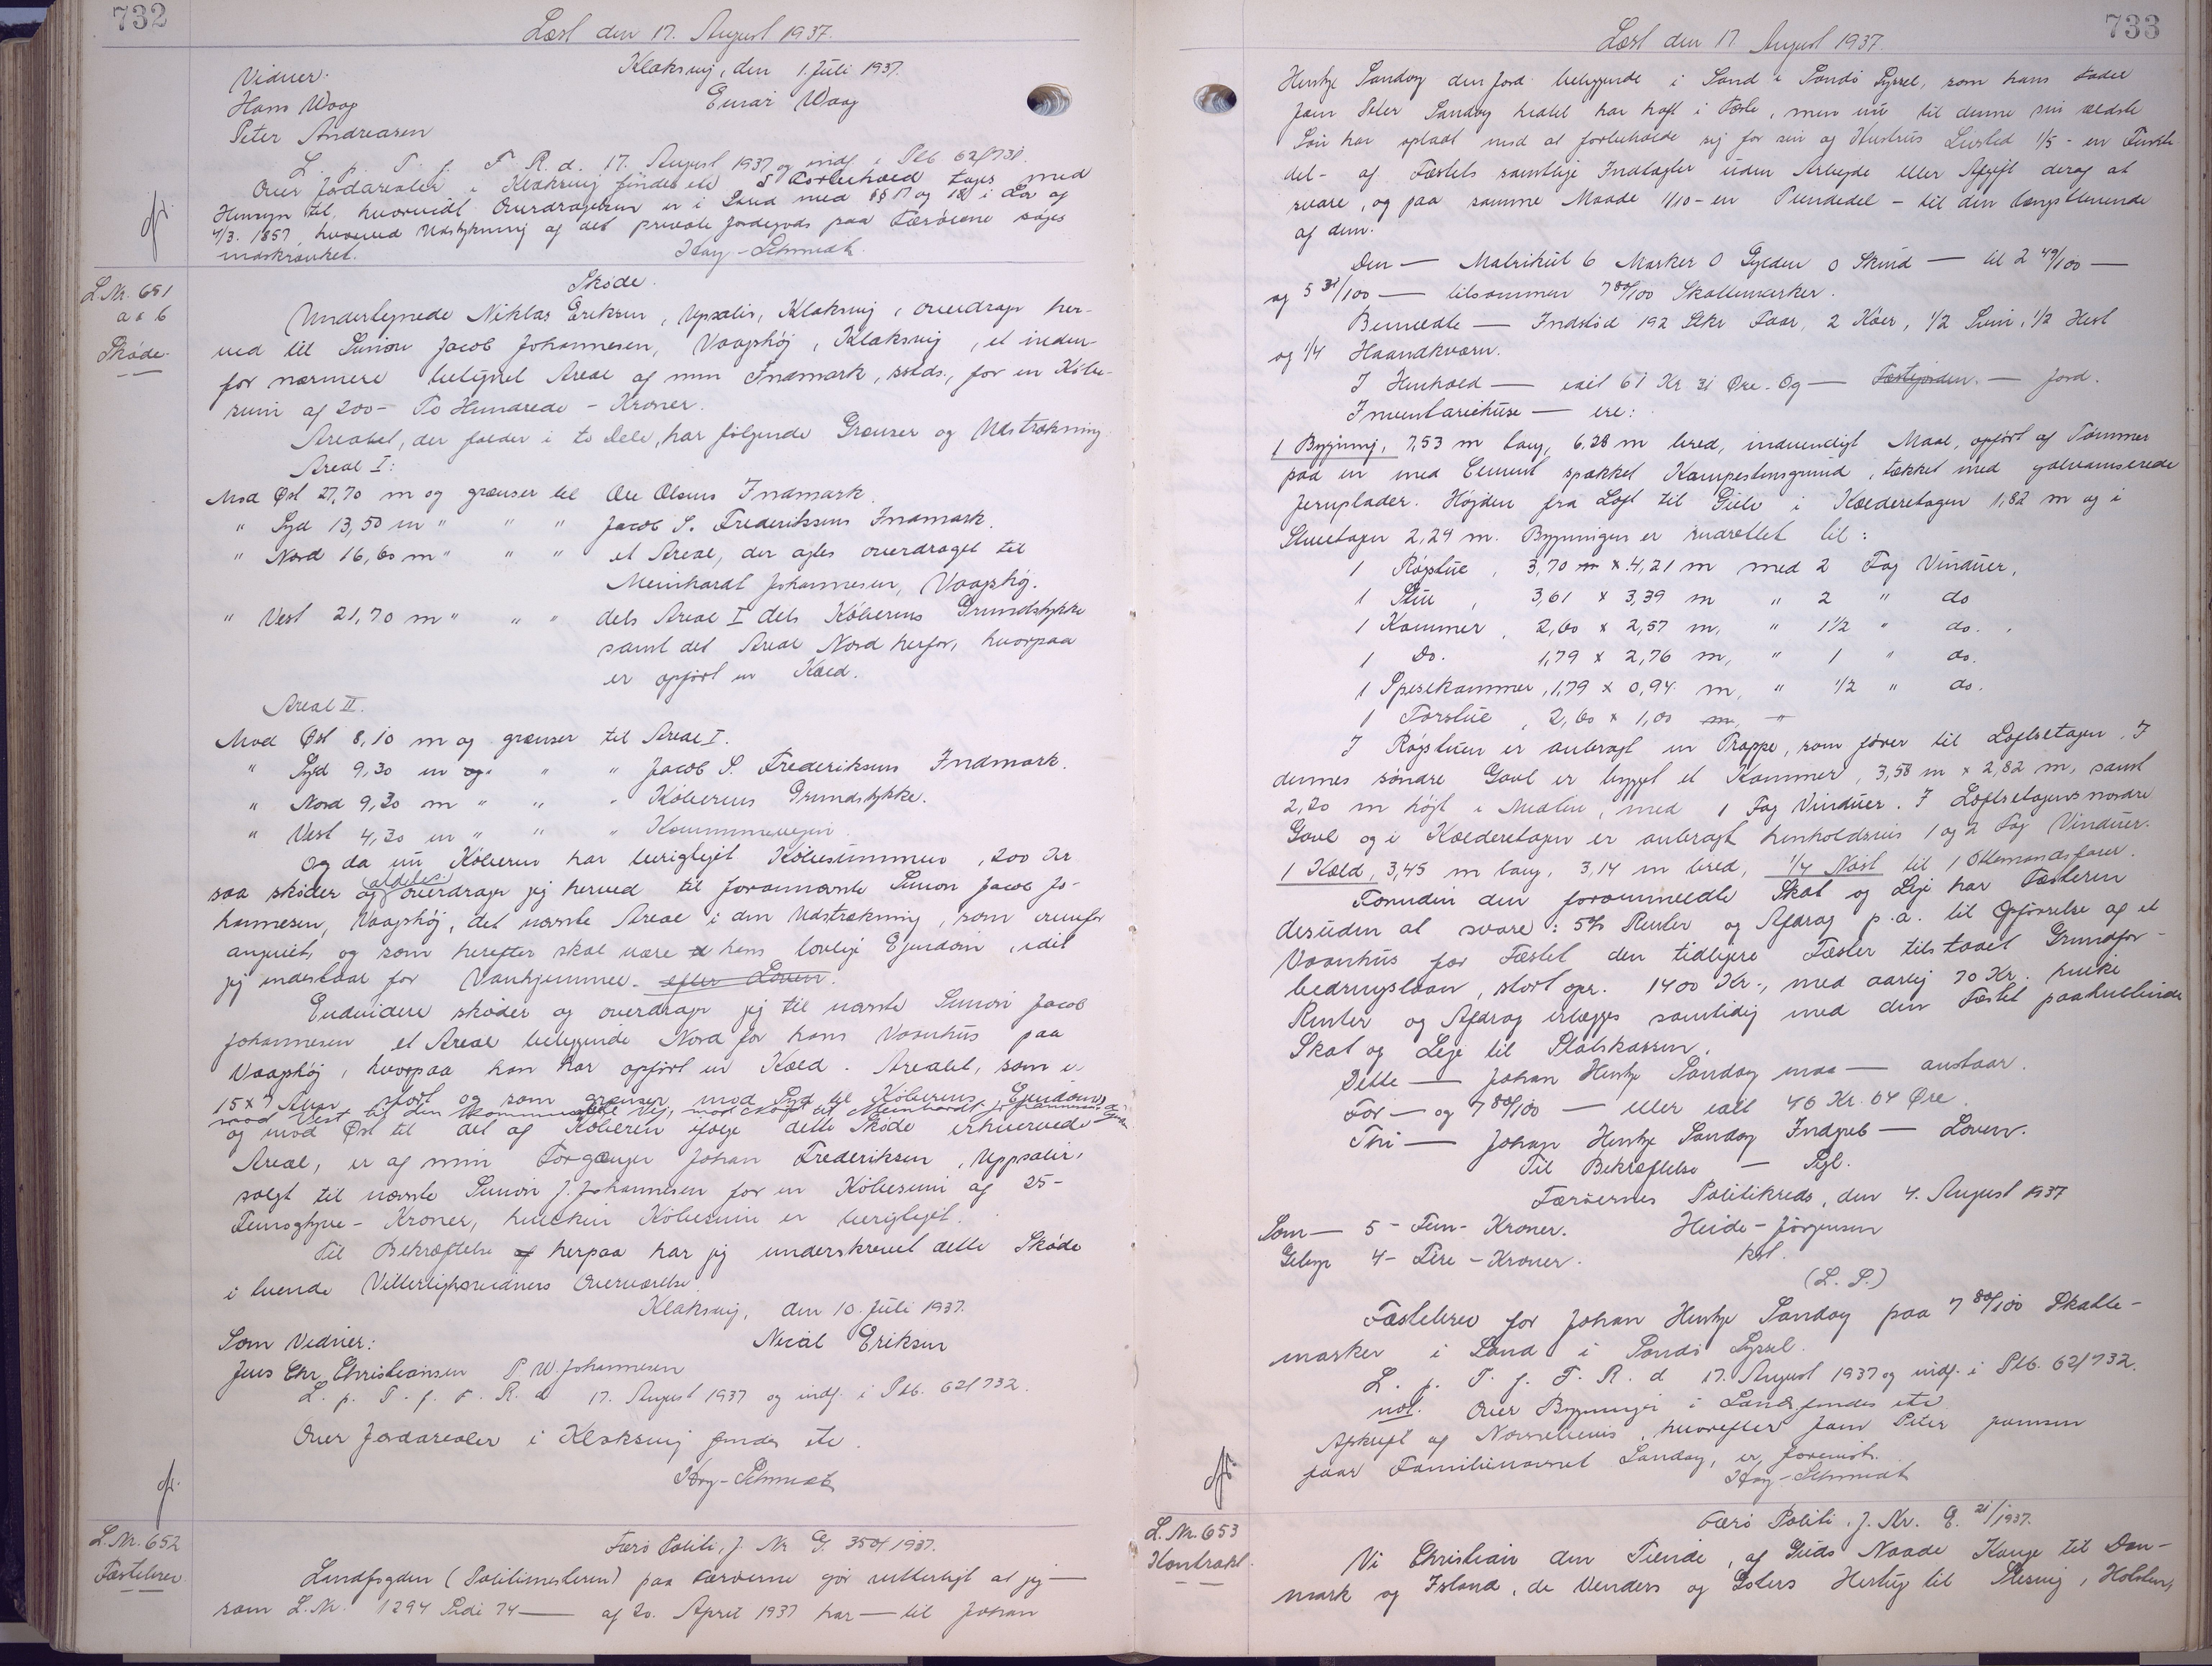 732
Læst den 17. August 1937.
Vidner:
Klaksvig, den 1. Juli 1937.
Hans Waag
Einar Waag
Peter Andreasen
L. p. T. f. F. R. d. 17. August 1937 og indf. i Ptb 62/731.
Over Jordarealer i Klaksvig findes etc Forbehold tages med
Hensyn til, hvorvidt Overdragelsen er i Strid med §§ 17 og 18 i Lov af
4/3. 1857, hvorved Udstykning af det private Jordegods paa Færøerne søges
indskrænket.
Kay-Schmidt
L. Nr. 651
a & b
Skøde
Skøde.
Undertegnede Niklas Eriksen, Uppsalir, Klaksvig, overdrager her-
ved til Simon Jacob Johannesen, Vaagshøj, Klaksvig, et inden-
for nærmere betegnet Areal af min Indmark, sstds., for en Købe-
sum af 200- To Hundrede - Kroner.
Arealet, der falder i to Dele, har følgende Grænser og Udstrækning
Areal I:
Mod Øst 27,70 m og grænser til Ole Olsens Indmark.
" Syd 13,50 m " " " Jacob S. Frederiksens Indmark.
" Nord 16,60 m " " " et Areal, der agtes overdraget til
Meinhardt Johannesen, Vaagshøj.
" Vest 21,70 m " " " dels Areal I dels Køberens Grundstykke
samt det Areal Nord herfor, hvorpaa
er opført en Kæld.
Areal II.
Mod Øst 8,10 m og grænser til Areal I.
" Syd 9,30 m og " " Jacob S. Frederiksens Indmark.
" Nord 9,30 m " " " Køberens Grundstykke.
" Vest 4,30 m " " " Kommunevejen.
Og da nu Køberen har berigtiget Købesummen, 200 Kr
saa skøder og aldeles overdrager jeg herved til forannævnte Simon Jacob Jo-
hannesen, Vaagshøj, det nævnte Areal i den Udstrækning, som ovenfor
angivet, og som herefter skal være hans lovlige Ejendom, idet
jeg indestaar for Vanhjemmel. efter Loven.
Endvidere skøder og overdrager jeg til nævnte Simon Jacob
Johannesen et Areal beliggende Nord for hans Vaanhus paa
Vaagshøj, hvorpaa han har opført en Kæld. Arealet, som er
15 x 7 Alen stort og som grænser mod Syd til Køberens Ejendom,
mod Vest til den kommunale Vej, mod Nord til Meinhardt Johannesens
og mod Øst til det af Køberen ifølge dette Skøde erhvervede
Areal, er af min Forgænger Johan Frederiksen, Uppsalir,
solgt til nævnte Simon J. Johannesen for en Købesum af 25-
Femogtyve - Kroner, hvilken Købesum er berigtiget.
Til Bekræftelse af herpaa har jeg underskrevet dette Skøde
i tvende Vitterlighedsvidners Overværelse
Klaksvig, den 10. Juli 1937.
Som Vidner:
Jens Chr. Christiansen P. W. Johannesen
L. p. T. f. F. R. d 17. August 1937 og indf. i Ptb. 62/732.
Over Jordarealer i Klaksvig findes etc.
Kay-Schmidt
L. Nr. 652
Fæstebrev
Færø Politi, J. Nr G. 350/1937.
Landfogden (Politimesteren) paa Færøerne gør vitterligt at jeg —
som L. Nr. 1294 Sidi 74 — af 20. April 1937 har — til Johan
733
Læst den 17. August 1937.
Hentze Sandoy den Jord beliggende i Sand i Sandø Syssel, som hans Fader
Joen Peter Sandoy hidtil har haft i Fæste, men nu til denne sin ældste
Søn har opladt mod at forbeholde sig for sin og Hustrus Livstid 1/5 - en Femte-
del - af Fæstets samtlige Indtægter uden Arbejde eller Afgift deraf at
svare, og paa samme Maade 1/10 - en Tiendedel - til den længstlevende
af dem.
Den — Matrikul 6 Marker 0 Gylden 0 Skind — til 2 49/100 —
og 5 31/100 — tilsammen 7 80/100 Skattemarker.
Bemeldte — Indstød 192 Stkr Faar, 2 Køer, 1/2 Svin, 1/2 Hest
og 1/4 Haandkværn.
I Henhold — ialt 61 Kr 31 Øre. Og — Fæstejorden. — Jord.
Inventariehuse — ere:
1 Bygning, 7,53 m lang, 6,28 m bred, indvendigt Maal, opført af Tømmer
paa en med Cement spækket Kampestensgrund, tækket med galvaniserede
Jernplader. Højden fra Loft til Gulv i Kælderetagen 1,82 m og i
Stueetagen 2,29 m. Bygningen er indrettet til:
1 Røgstue, 3,70 m x 4,21 m med 2 Fag Vinduer,
1 Stue, 3,61 x 3,39 m " 2 " do
1 Kammer, 2,60 x 2,57 m, " 1 1/2 " do.
1 Do. 1,79 x 2,76 m, " 1 " do.
1 Spisekammer, 1,79 x 0,94 m, " 1/2 " do.
1 Forstue, 2,60 x 1,00 m,
I Røgstuen er anbragt en Trappe, som fører til Loftsetagen. I
dennes søndre Gavl er bygget et Kammer, 3,58 m x 2,82 m, samt
2,20 m højt i Midten, med 1 Fag Vinduer. I Loftsetagens nordre
Gavl og i Kælderetagen er anbragt henholdsvis 1 og 2 Fag Vinduer.
1 Kæld, 3,45 m lang, 3,14 m bred, 1/4 Nøst til 1 Ottemandsfarer.
Foruden den forommeldte Skat og Leje har Fæsteren
desuden at svare: 5% Renter og Afdrag p.a. til Opførelse af et
Vaanhus for Fæstet den tidligere Fæster tilstaaet Grundfor-
bedringslaan, stort opr. 1400 Kr., med aarlig 70 Kr. hvilke
Renter og Afdrag erlægges samtidig med den Fæstet paahvilende
Skat og Leje til Statskassen.
Dette — Johan Hentze Sandoy maa — anstaar.
For — og 7 80/100 — eller ialt 46 Kr. 04 Øre.
Thi — Johan Hentze Sandoy Indgreb — Loven.
Til Bekræftelse — Segl.
Færøernes Politikreds, den 4. August 1937
Som — 5 - Fem - Kroner. Heide-Jørgensen
Gebyr 4 - Fire - Kroner. kst.
(L. S.)
Fæstebrev for Johan Hentze Sandoy paa 7 80/100 Skatte-
marker i Sand i Sandø Syssel.
L. p. T. f. F. R. d 17. August 1937 og indf. i Ptb. 62/732.
not. Over Bygninger i Sand findes etc
Afskrift af Navnebevis, hvorefter Joen Peter Joensen
faar Familienavnet Sandoy, er forevist.
Kay-Schmidt
L. Nr. 653
Kontrakt.
Færø Politi, J. Nr. G. 21/1937.
Vi Christian den Tiende, af Guds Naade Konge til Dan-
mark og Island, de Venders og Goters Hertug til Slesvig, Holsten,